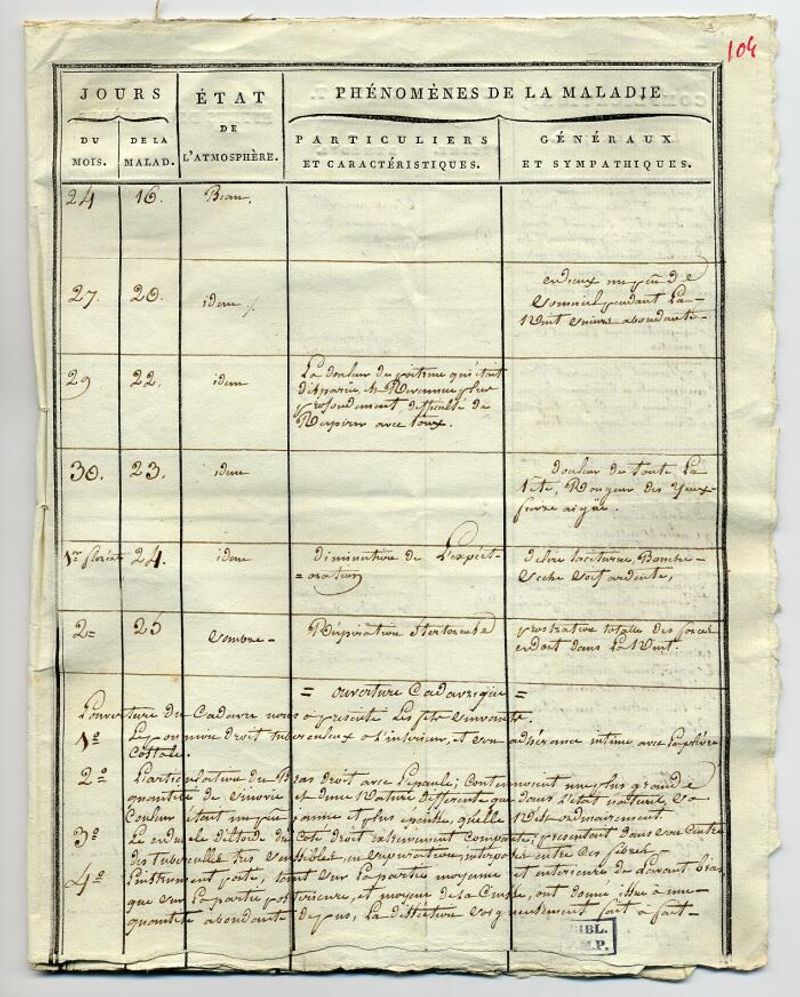 104
JOURS
DU MOIS.
DE LA MALAD.
ÉTAT
DE
L'ATMOSPHÈRE.
PHÉNOMÈNES DE LA MALADIE
PARTICULIERS
ET CARACTÉRISTIQUES.
GÉNÉRAUX
ET SYMPATHIQUES.
24 16. Beau.
27. 20. idem
un peu de
Sommeil pendant La
Nuit abondante
29 22. idem
La douleur de poitrine qui étoit
disparüe, est Revenue plus
profondement, difficulté de
Respirer avec toux.
30. 23. idem
douleur de toute La
tête, Rougeur des yeux
fievre aigüe.
1er floréal 24. idem
diminution de L'expect-
=oration
delire taciturne, Bouche
Seche soif ardente,
2= 25 Sombre
Réspiration Stertorente
prostration totalle des forces
endort dans La Nuit.
= ouverture Cadavrique =
L'ouverture du Cadavre nous a présenté Les faits Suivants.
1º Le poumon droit tuberculeux a L'interieur, et son adhérance intime avec La plévre
Costale.
2º L'articulation du Bras droit avec L'epaule; Contenoient une plus grande
quantité de sinovie et d'une Nature differente que dans L'état naturel, Sa
Couleur étant un peu jaune et plus épaisse, qu'elle N'est ordinairement
3º Le muscle deltoide du Coté droit extrêmement compacte, présentoit dans son Centre
des tubercules tres Sensibles, en Supuration, interposés entre des fibres.
4º L'instrument porté, tant Sur La partie moyenne et interieure de L'avant bras
que Sur La partie posterieure, et moyene de La Cuisse, ont donné issue a une
quantité abondante de pus, La dissection soigneusement fait a fait
BIBL.